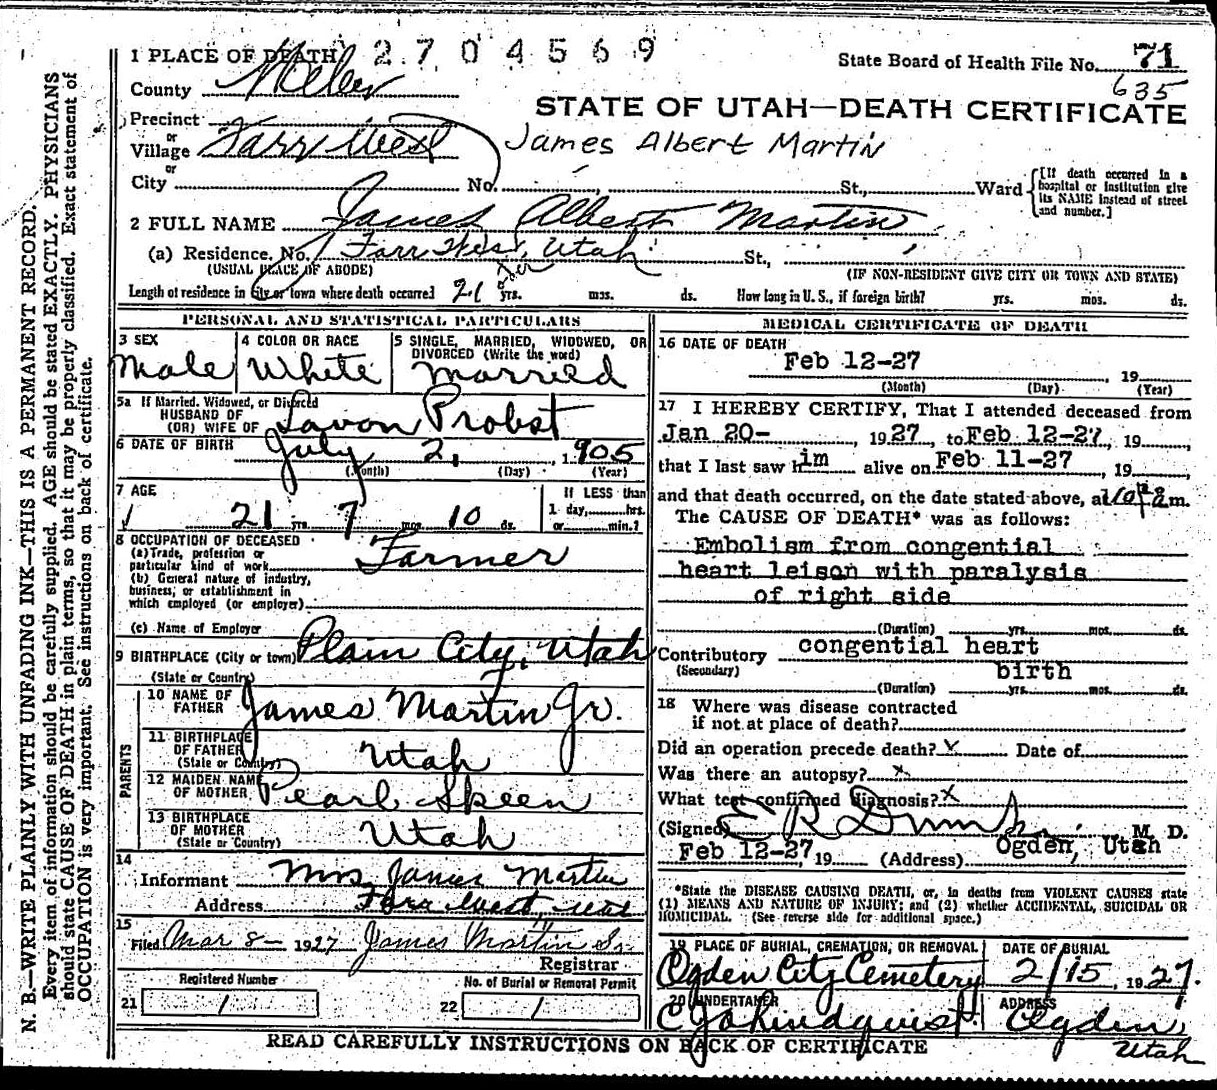 1 PLACE OF DEATH 2704569
State Board of Health File No. 71
635
County Weber
STATE OF UTAH—DEATH CERTIFICATE
Precinct
or
Village Farr West
James Albert Martin
or
City No. St., Ward
[If death occurred in a hospital or institution give its NAME instead of street and number.]
2 FULL NAME James Albert Martin
(a) Residence. No. Farr West, Utah St.,
(USUAL PLACE OF ABODE) (IF NON-RESIDENT GIVE CITY OR TOWN AND STATE)
Length of residence in city or town where death occurred 21 yrs. mos. ds. How long in U. S., if foreign birth? yrs. mos. ds.
PERSONAL AND STATISTICAL PARTICULARS
3 SEX
Male
4 COLOR OR RACE
White
5 SINGLE, MARRIED, WIDOWED, OR
DIVORCED (Write the word)
Married
5a If Married, Widowed, or Divorced
HUSBAND OF
(OR) WIFE OF Lavon Probst
6 DATE OF BIRTH July 2, 1905
(Month) (Day) (Year)
7 AGE
21 yrs. 7 mos. 10 ds.
If LESS than
1 day, hrs.
or min.?
8 OCCUPATION OF DECEASED
(a) Trade, profession or
particular kind of work Farmer
(b) General nature of industry,
business, or establishment in
which employed (or employer)
(c) Name of Employer
9 BIRTHPLACE (City or town) Plain City, Utah
(State or Country)
PARENTS
10 NAME OF
FATHER James Martin Jr.
11 BIRTHPLACE
OF FATHER
(State or Country) Utah
12 MAIDEN NAME
OF MOTHER Pearl Skeen
13 BIRTHPLACE
OF MOTHER
(State or Country) Utah
14
Informant Mrs James Martin
Address Farr West, Utah
15
Filed Mar 8— 1927 James Martin Sr.
Registrar
Registered Number
21 1
No. of Burial or Removal Permit
22 1
MEDICAL CERTIFICATE OF DEATH
16 DATE OF DEATH
Feb 12-27, 19
(Month) (Day) (Year)
17 I HEREBY CERTIFY, That I attended deceased from
Jan 20- , 1927, to Feb 12-27, 19
that I last saw him alive on Feb 11-27, 19
and that death occurred, on the date stated above, at m.
The CAUSE OF DEATH* was as follows:
Embolism from congential
heart leison with paralysis
of right side
(Duration) yrs. mos. ds.
Contributory congential heart
(Secondary) birth
(Duration) yrs. mos. ds.
18 Where was disease contracted
if not at place of death?
Did an operation precede death? x Date of
Was there an autopsy? x
What test confirmed diagnosis? x
(Signed) E R , M. D.
Feb 12-27, 19 (Address) Ogden, Utah
*State the DISEASE CAUSING DEATH, or, in deaths from VIOLENT CAUSES state
(1) MEANS AND NATURE OF INJURY; and (2) whether ACCIDENTAL, SUICIDAL OR
HOMICIDAL. (See reverse side for additional space.)
19 PLACE OF BURIAL, CREMATION, OR REMOVAL
Ogden City Cemetery
DATE OF BURIAL
2/15, 1927.
20 UNDERTAKER
C J A Lindquist
ADDRESS
Ogden
Utah
READ CAREFULLY INSTRUCTIONS ON BACK OF CERTIFICATE
N. B.—WRITE PLAINLY WITH UNFADING INK—THIS IS A PERMANENT RECORD.
Every item of information should be carefully supplied. AGE should be stated EXACTLY. PHYSICIANS
should state CAUSE OF DEATH in plain terms, so that it may be properly classified. Exact statement of
OCCUPATION is very important. See instructions on back of certificate.